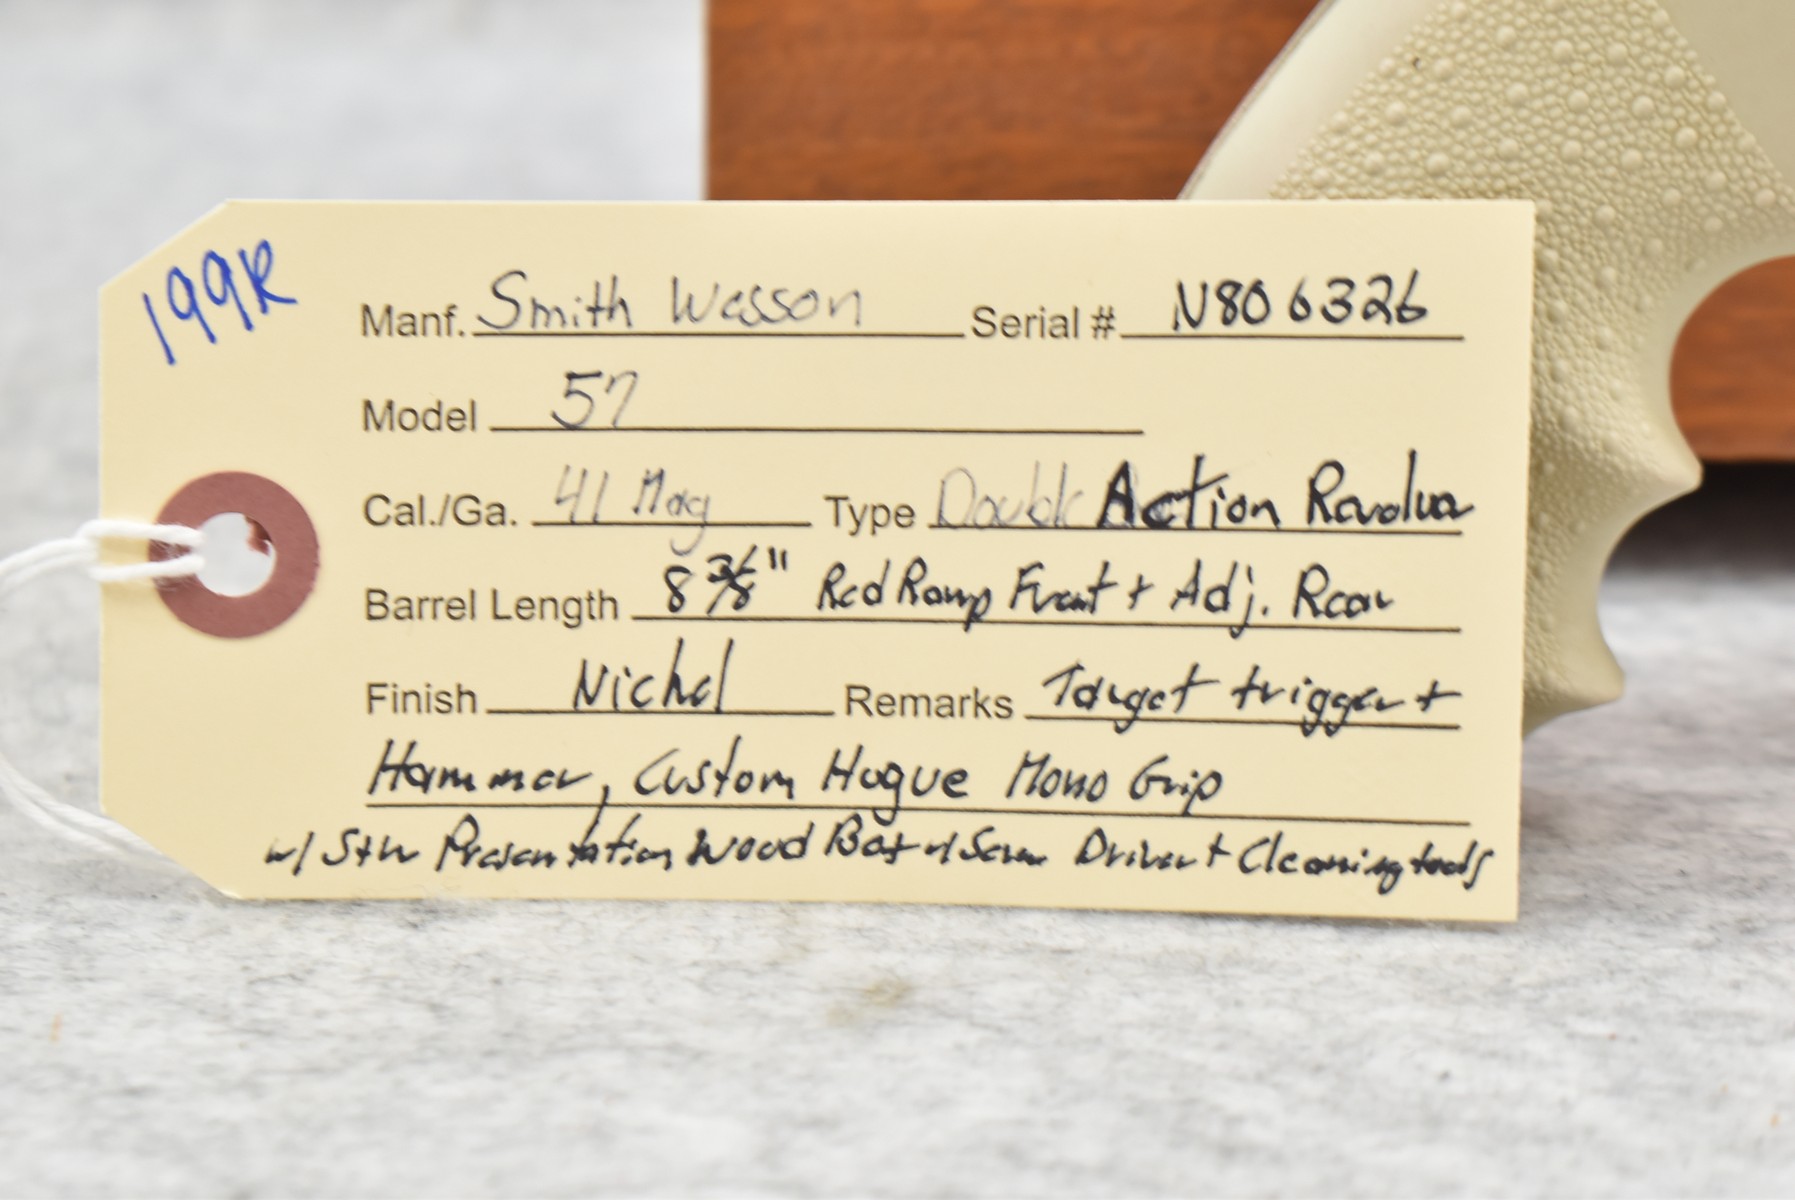 199R
Manf. Smith Wesson Serial # N806326
Model 57
Cal./Ga. 41 Mag Type Double Action Revolver
Barrel Length 8 3/8" Red Ramp Front + Adj. Rear
Finish Nickel Remarks Target trigger +
Hammer, Custom Hogue Mono Grip
w/ S+W Presentation Wood Box w/ Screw Driver + Cleaning tools